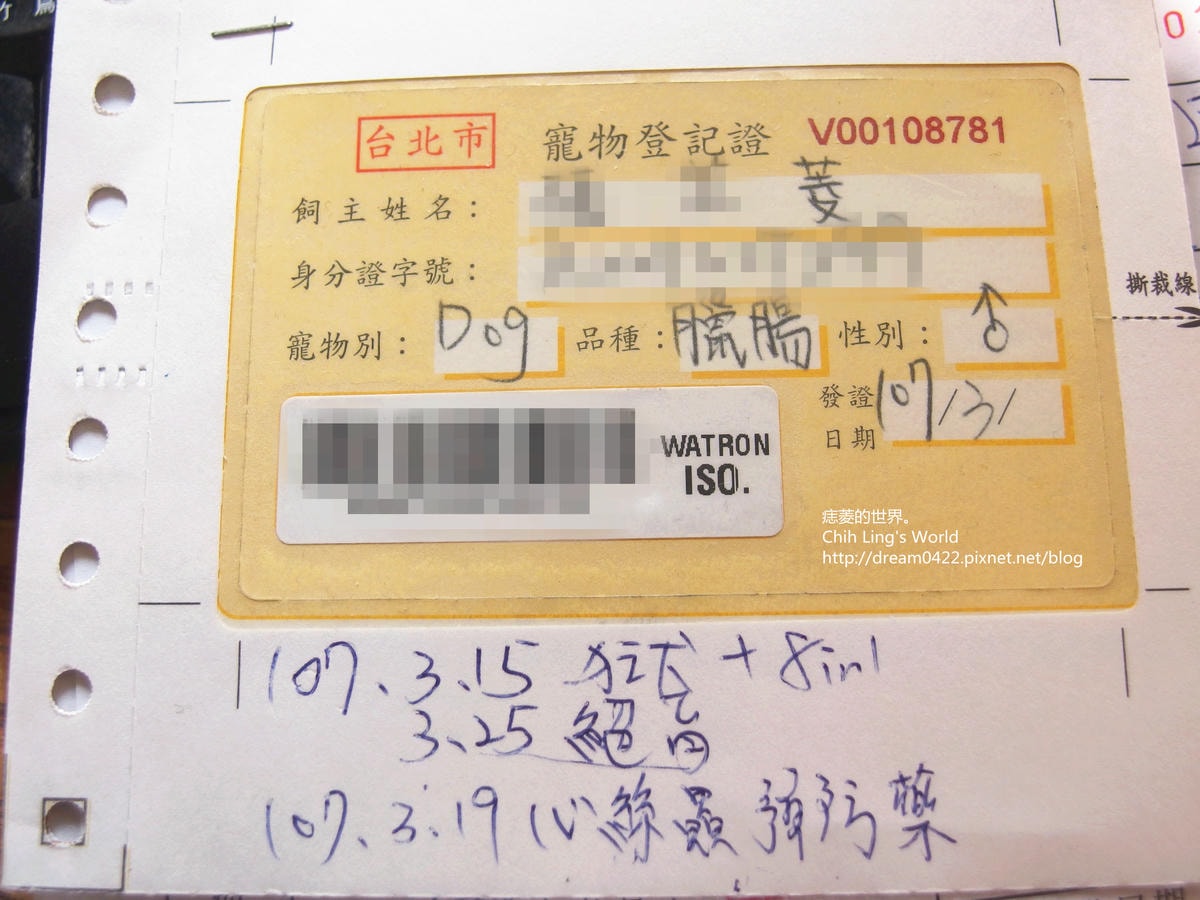 台北市 寵物登記證 V00108781
飼主姓名： 菱
身分證字號：
寵物別： Dog 品種： 臘腸 性別： ♂
撕裁線
發證日期 107/3/
WATRON
ISO.
痣菱的世界。
Chih Ling's World
http://dream0422.pixnet.net/blog
107、3、15 狂犬 + 8in1
3、25 絕育
107.3.19 心絲蟲 預防藥